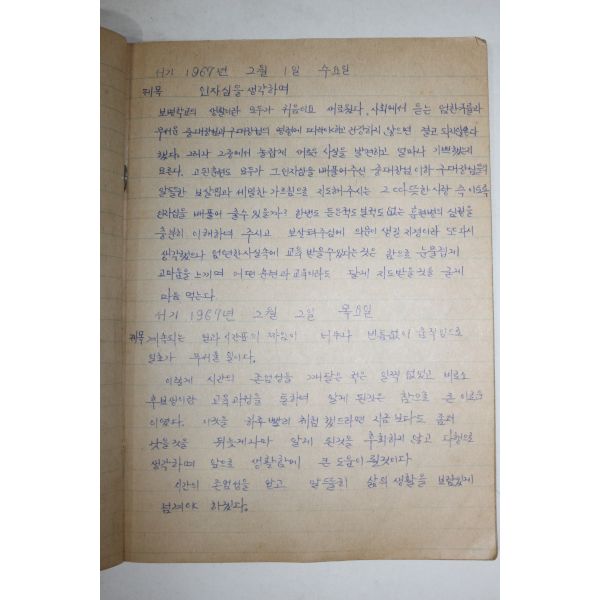 서기 1967년 2월 1일 수요일
제목 인자심을 생각하며
보병학교의 생활이라 모두가 처음이요 새로웠다. 사회에서 듣는 엄한규율과
무서운 중대장님과 구대장님의 명령에 따라야하고 건강하지 않으면 절고
했다. 그러나 그중에서 놀랍게 새로운 사실을 발견하고 얼마나 기뻤는지
모른다. 고된훈련도 모두가 그 인자심을 베풀어주신 중대장님 이하 구대장님들의
알뜰한 보살핌과 세밀한 가르침으로 지도해주시는 그 따뜻한 사랑 속
인자심을 베풀어 줄수 있을까? 한번도 듣은적도 본적도 없는 훈련병의 실정을
충분히 이해하여 주시고 보살펴주심에 의문이 생길 지경이라 또다시
생각했으나 엄연한 사실속에 교육 받을수 있다는것은 참으로 눈물겹게
고마움을 느끼며 어떤 훈련과 교육이라도 달게 지도받을것을 굳게
마음 먹는다
서기 1967년 2월 2일 목요일
제목 계속되는 일과 시간표의 짜임이 너무나 빈틈없이 움직임으로
일초가 무서울 일이다.
이렇게 시간의 존엄성을 깨달은 적은 일찍 없었고 비로소
후보생이란 교육과정을 통하여 알게 된것은 참으로 큰 이로움
이였다. 이것을 하루 빨리 체험 했드라면 지금 보다도 좀더
낫을것을 뒤늦게나마 알게 된것을 후회하지 않고 다행으로
생각하며 앞으로 생활함에 큰 도움이 될것이다
시간의 존엄성을 알고 알뜰히 삶의 생활을 보람있게
넘겨야 하겠다.